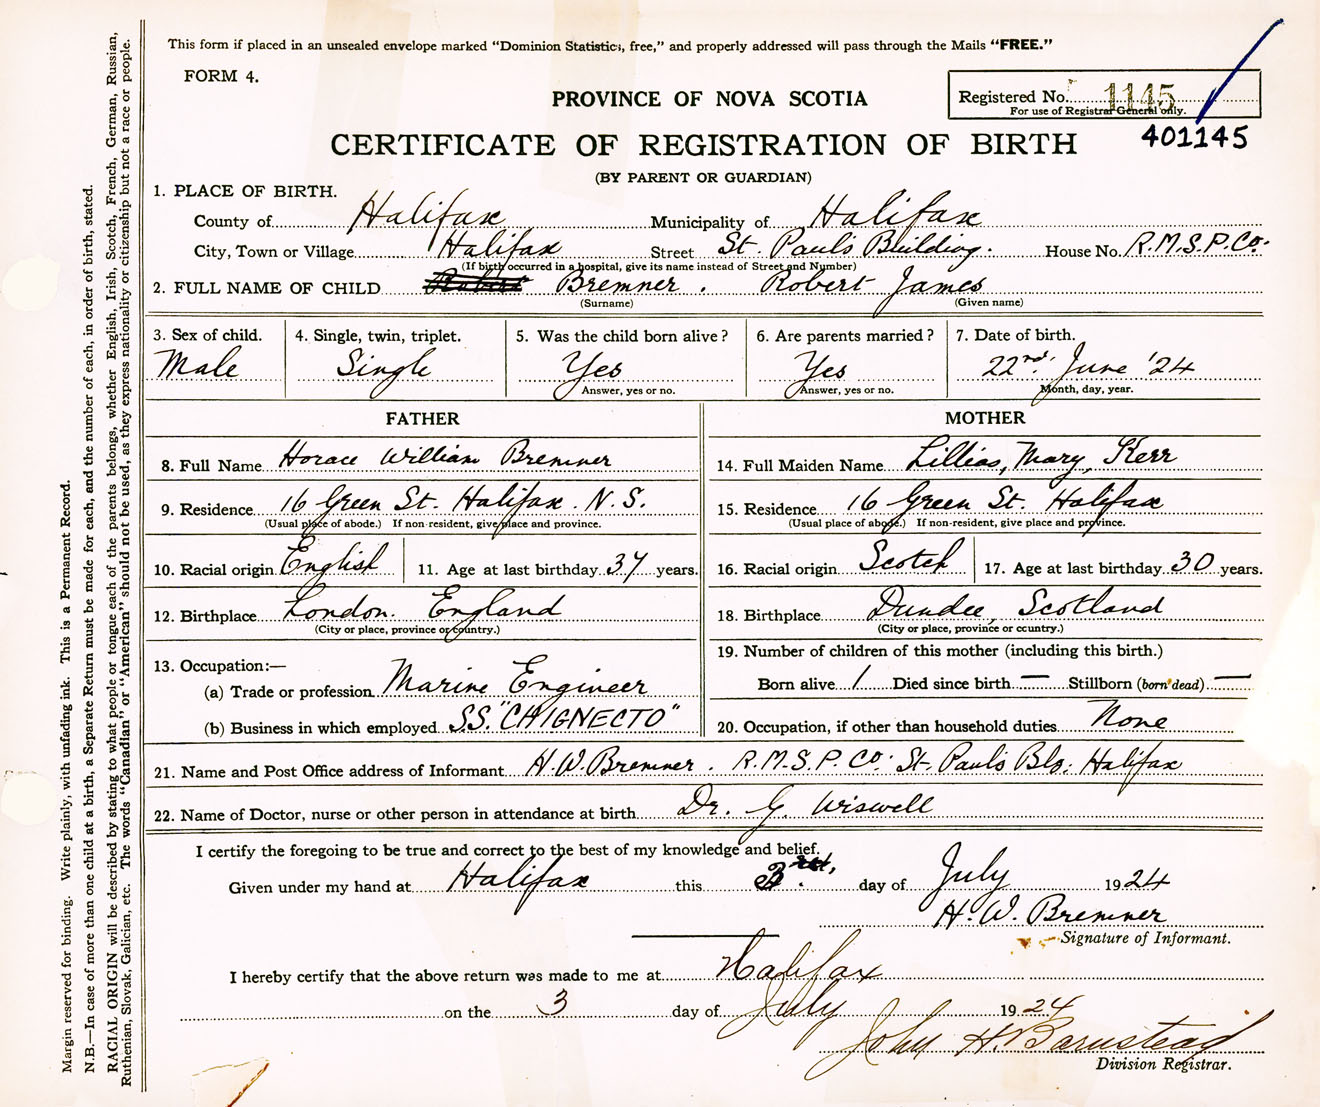 This form if placed in an unsealed envelope marked "Dominion Statistics, free," and properly addressed will pass through the Mails "FREE."
FORM 4.
Registered No. 1145
For use of Registrar General only.
401145
PROVINCE OF NOVA SCOTIA
CERTIFICATE OF REGISTRATION OF BIRTH
(BY PARENT OR GUARDIAN)
1. PLACE OF BIRTH.
County of Halifax Municipality of Halifax
City, Town or Village Halifax Street St. Paul's Building. House No. R.M.S.P.Co.
(If birth occurred in a hospital, give its name instead of Street and Number)
2. FULL NAME OF CHILD Robert Bremner. Robert James
(Surname) (Given name)
3. Sex of child. 4. Single, twin, triplet. 5. Was the child born alive? 6. Are parents married? 7. Date of birth.
Male Single Yes Yes 22nd. June '24
Answer, yes or no. Answer, yes or no. Month, day, year.
FATHER MOTHER
8. Full Name Horace William Bremner 14. Full Maiden Name Lillias, Mary, Kerr
9. Residence 16 Green St. Halifax. N.S. 15. Residence 16 Green St. Halifax
(Usual place of abode.) If non-resident, give place and province. (Usual place of abode.) If non-resident, give place and province.
10. Racial origin English 11. Age at last birthday 37 years. 16. Racial origin Scotch 17. Age at last birthday 30 years.
12. Birthplace London. England 18. Birthplace Dundee, Scotland
(City or place, province or country.) (City or place, province or country.)
13. Occupation:— 19. Number of children of this mother (including this birth.)
(a) Trade or profession Marine Engineer Born alive 1 Died since birth — Stillborn (born dead) —
(b) Business in which employed S.S. "CHIGNECTO" 20. Occupation, if other than household duties None
21. Name and Post Office address of Informant H.W. Bremner. R.M.S.P. Co. St. Paul's Blg. Halifax
22. Name of Doctor, nurse or other person in attendance at birth Dr. G. Wiswell
I certify the foregoing to be true and correct to the best of my knowledge and belief.
Given under my hand at Halifax this 3rd. day of July 1924
H. W. Bremner
Signature of Informant.
I hereby certify that the above return was made to me at Halifax
on the 3 day of July 1924
John H. Barnstead
Division Registrar.
Margin reserved for binding. Write plainly, with unfading ink. This is a Permanent Record.
N.B.—In case of more than one child at a birth, a Separate Return must be made for each, and the number of each, in order of birth, stated.
RACIAL ORIGIN will be described by stating to what people or tongue each of the parents belongs, whether English, Irish, Scotch, French, German, Russian,
Ruthenian, Slovak, Galician, etc. The words "Canadian" or "American" should not be used, as they express nationality or citizenship but not a race or people.